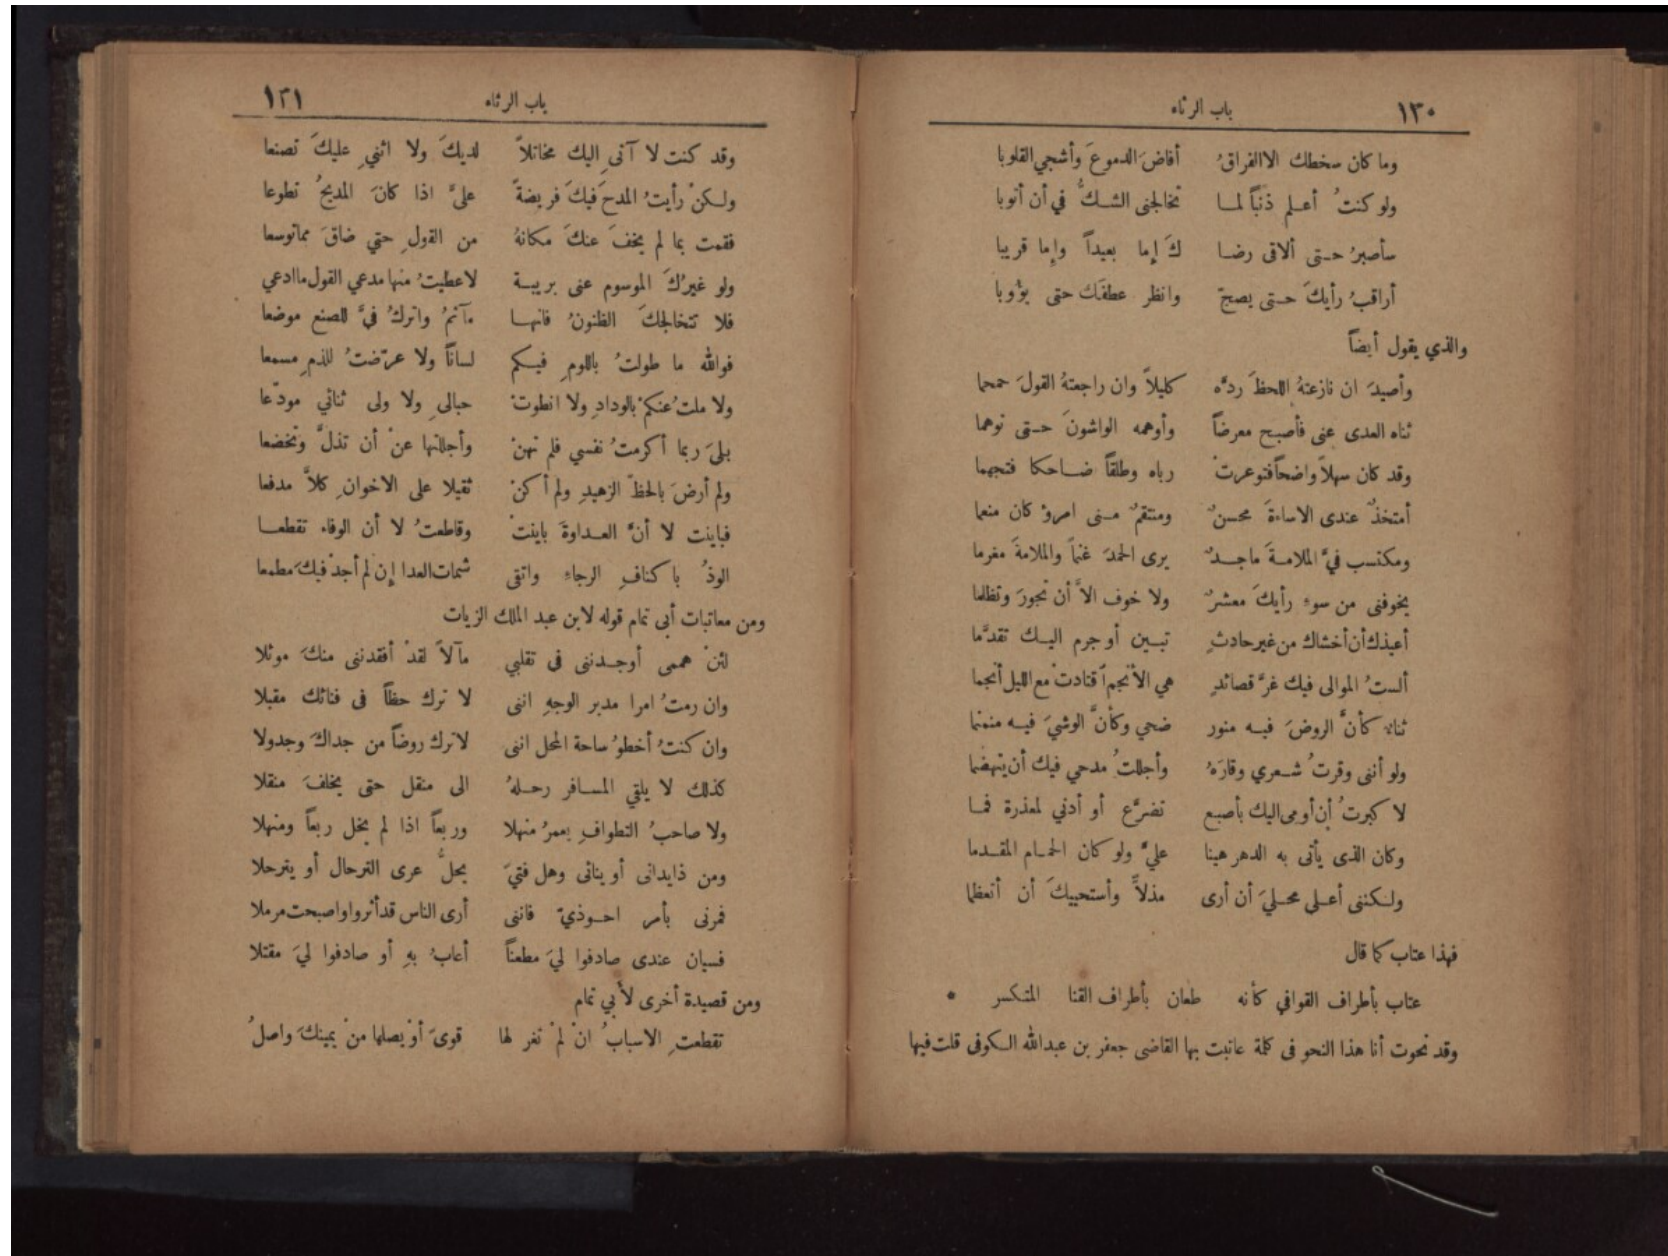 ١٣٠ باب الرثاء
وما كان سخطك الا الفراقُ أفاضَ الدموعَ وأشجي القلوبا
ولو كنتُ أعلم ذنباً لما تخالجنى الشكُّ في أن أتوبا
سأصبرُ حتى ألاقى رضا كَ إما بعيداً وإما قريبا
أراقبُ رأيكَ حتى يصحّ وانظر عطفَك حتى يؤوبا
والذي يقول أيضاً
وأصيدَ ان نازعتهُ اللحظَ ردَّه كليلاً وان راجعتهُ القولَ جمجما
ثناه العدى عنى فأصبح معرضاً وأوهمه الواشونَ حتى توهما
وقد كان سهلاً واضحاً فتوعرتْ رباه وطلقاً ضاحكا فتجهما
أمتخذٌ عندى الاساءةَ محسنٌ ومنتقمٌ منى امرؤ كان منعما
ومكتسب فيَّ الملامةَ ماجدٌ يرى الحمدَ غنماً والملامةَ مغرما
يخوفنى من سوءِ رأيكَ معشرٌ ولا خوف الاَّ أن تجورَ وتظلما
أعيذك أن أخشاك من غير حادثٍ تبين أو جرم اليك تقدَّما
ألستُ الموالى فيك غرَّ قصائدٍ هي الأنجم اقتادتْ مع الليل أنجما
ثناء كأنَّ الروضَ فيه منور ضحي وكأنَّ الوشيَ فيه منمنما
ولو أننى وقرتُ شعري وقارَهُ وأجللتُ مدحي فيك أن يتهضما
لا كبرتُ أن أومى اليك بأصبع تضرَّع أو أدني لمعذرة فما
وكان الذى يأتى به الدهر هينا عليَّ ولو كان الحمام المقدما
ولكننى أعلي محليَ أن أرى مذلاًّ وأستحييكَ أن أتعظما
فهذا عتاب كما قال
عتاب بأطراف القوافي كأنه طعان بأطراف القنا المتكسر •
وقد نحوت أنا هذا النحو فى كلمة عاتبت بها القاضى جعفر بن عبدالله الكوفى قلت فيها
باب الرثاء ١٣١
وقد كنت لا آتى اليك مخاتلاً لديكَ ولا اثني عليكَ تصنعا
ولكنْ رأيتُ المدحَ فيكَ فريضةً علىَّ اذا كانَ المديحُ تطوعا
فقمت بما لم يخفَ عنكَ مكانهُ من القولِ حتي ضاقَ مما توسعا
ولو غيرُكَ الموسوم عنى بريبة لاعطيتُ منها مدعي القول ما ادعي
فلا تتخالجكَ الظنونُ فانها مآثمُ واتركُ فيَّ للصنع موضعا
فوالله ما طولتُ باللومِ فيكم لساناً ولا عرّضتُ للذمِ مسمعا
ولا ملت عنكمْ بالودادِ ولا انطوتْ حبالىِ ولا ولى ثنائي مودّعا
بلىَ ربما أكرمتُ نفسي فلم تهنْ وأجللتها عنْ أن تذلَّ وتخضعا
ولم أرضَ بالحظْ الزهيدِ ولم أكنْ ثقيلا على الاخوانِ كلاًّ مدفعا
فباينت لا أنَّ العداوةَ باينتْ وقاطعتُ لا أن الوفاء تقطعا
الوذُ باكنافِ الرجاءِ واتقى شمات العدا إن لم أجدْ فيكَ مطمعا
ومن معاتبات أبى تمام قوله لابن عبد الملك الزيات
لئنْ هممى أوجدننى في تقلبي مآلاً لقدْ أفقدننى منكَ موئلا
وان رمتُ امرا مدبر الوجهِ اننى لا ترك حظاً فى فنائك مقبلا
وان كنتُ أخطوُ ساحة المحل اننى لاترك روضاً من جداكَ وجدولا
كذلك لا يلقي المسافر رحلهُ الى منقل حتى يخلفَ منقلا
ولا صاحبُ التطوافِ يعمرُ منهلا وربعاً اذا لم يخل ربعاً ومنهلا
ومن ذا يدانى أو ينائى وهل فتيَ يحلُّ عرى الترحال أو يترحلا
فمرنى بأمر احوذيّ فاننى أرى الناس قد أثروا واصبحت مرملا
فسيان عندى صادفوا ليَ مطعناً أعابُ بهِ أو صادفوا ليَ مقتلا
ومن قصيدة أخرى لأبي تمام
تقطعتِ الاسبابُ انْ لمْ تغر لها قوىَ أوْ يصلها منْ يمينكَ واصلُ